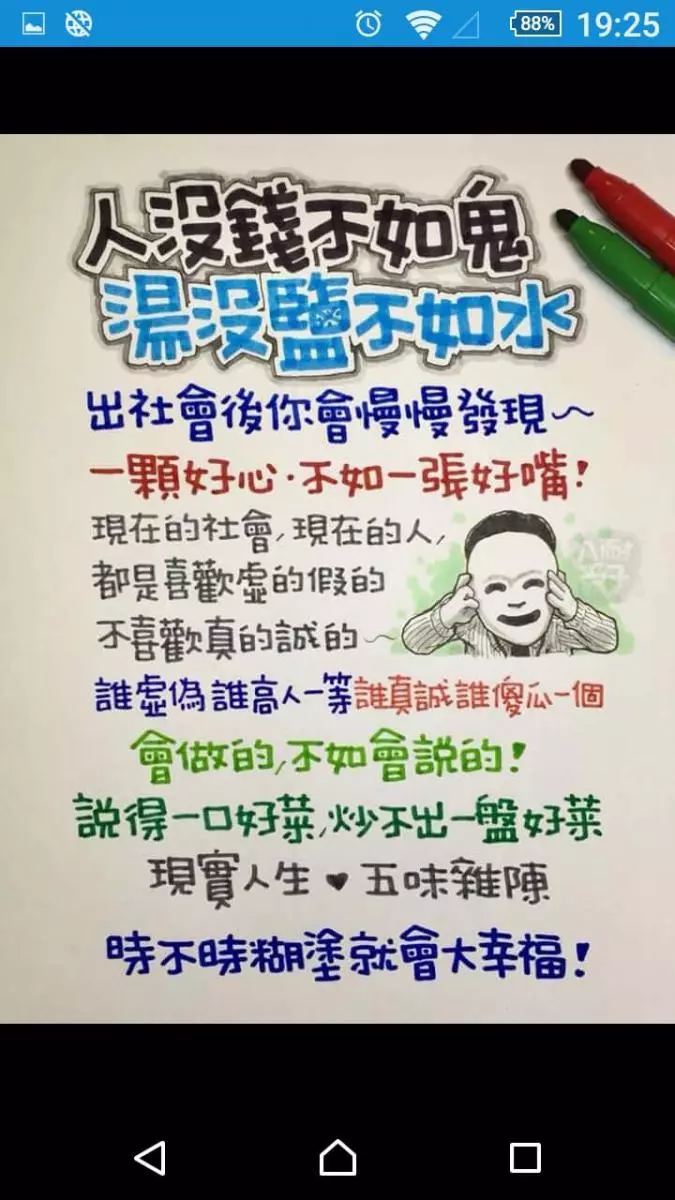 88%
19:25
人沒錢不如鬼
湯沒鹽不如水
出社會後你會慢慢發現～
一顆好心·不如一張好嘴！
現在的社會,現在的人,
都是喜歡虛的假的
不喜歡真的誠的～
誰虛偽誰高人一等誰真誠誰傻瓜一個
會做的,不如會説的！
説得一口好菜,炒不出一盤好菜
現實人生♥五味雜陳
時不時糊塗就會大幸福！